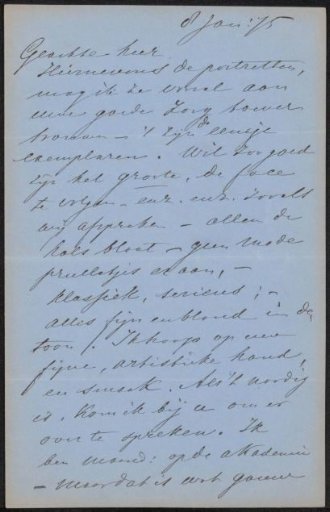 8 Jan: 75
Geachte heer
Hiernevens de portretten,
mag ik ze vooral aan
uwe goede zorg toever
trouwen – 't zijn de eenige
exemplaren. Wil zoo goed
zijn het groote, de face
te volgen – enz. enz. zooals
wij afspreken – alleen de
hals bloot – geen mode
prulletjes er aan, –
klassiek, serieus; –
alles fijn en blond in de
toon! Ik hoop op uwe
fijne, artistieke hand
en smaak. Als 't noodig
is, kom ik bij u om er
over te spreken. Ik
ben maand: op de akademie
– maar dat is wat gauw